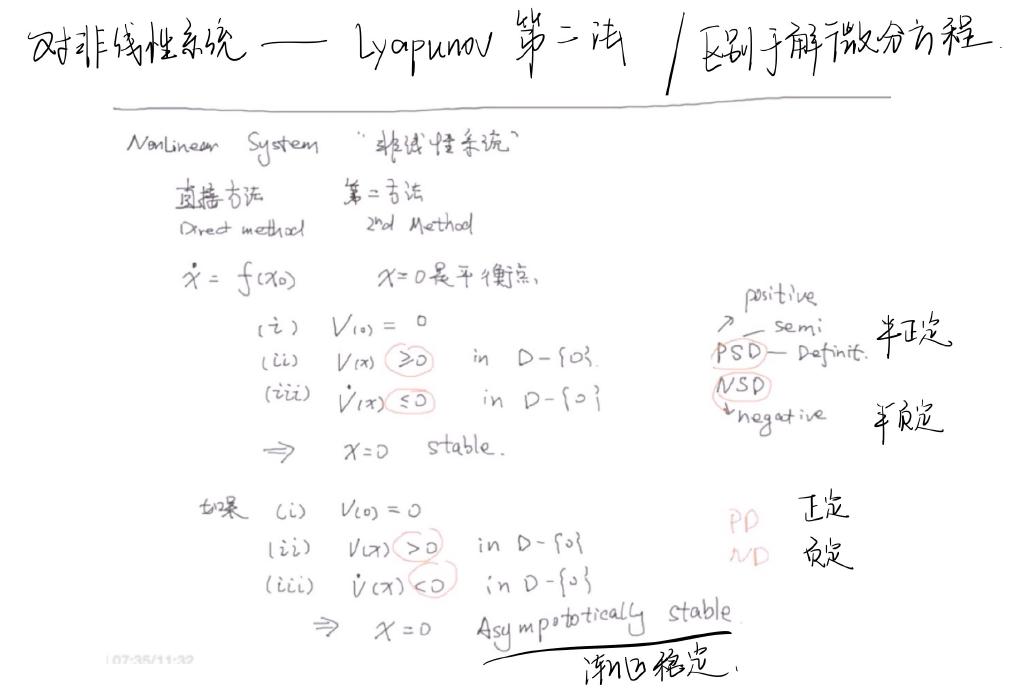 对非线性系统 —— Lyapunov 第二法 / 区别于解微分方程.
NonLinear System “非线性系统”
直接方法 第二方法
Direct method 2nd Method
ẋ = f(x₀) x=0是平衡点,
(i) V(0) = 0
(ii) V(x) ≥0 in D-{0}.
(iii) V̇(x) ≤0 in D-{0}
⇒ x=0 stable.
positive
semi
PSD — Definit.
NSD
negative
半正定
半负定
如果 (i) V(0) = 0
(ii) V(x) >0 in D-{0}
(iii) V̇(x) <0 in D-{0}
⇒ x=0 Asympototically stable
PD 正定
ND 负定
渐近稳定.
07:35/11:32